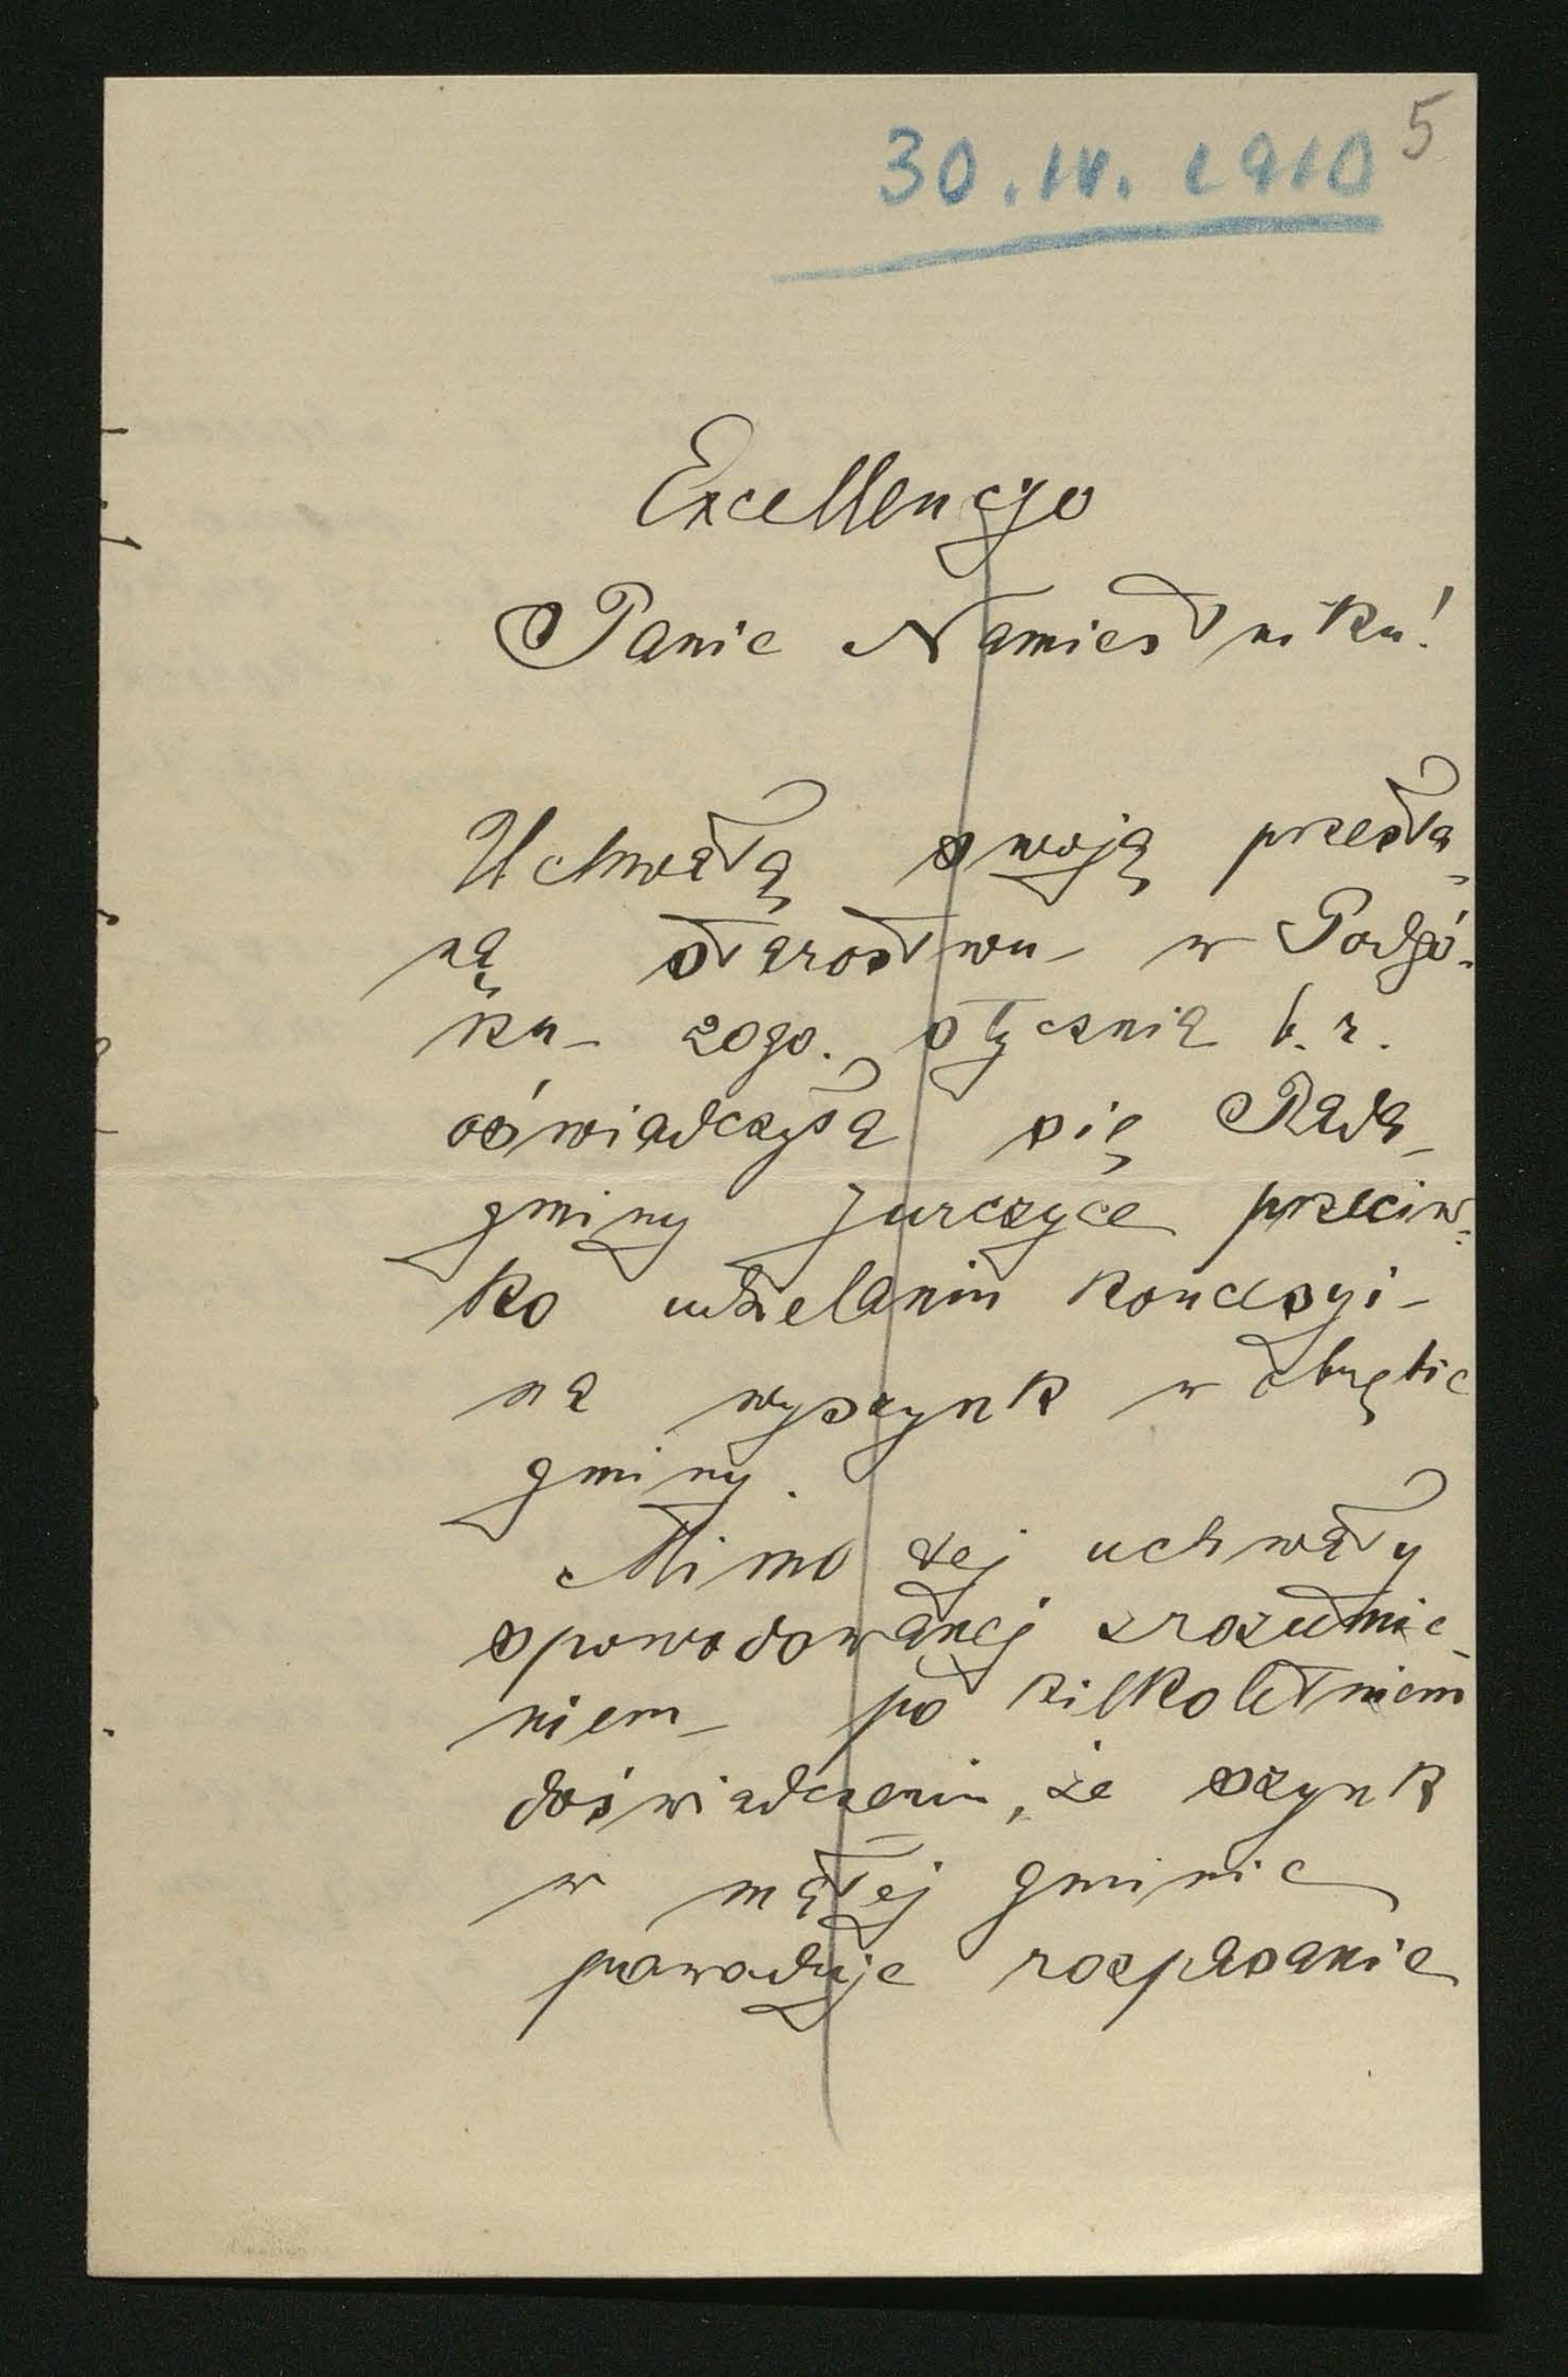 5
30.IV.1910
Excellencyo
Panie Namiestniku!
Uchwałą swoją przesła-
ną starostwu w Podgó-
rzu 20go. stycznia b.r.
oświadczyła się Rada
gminy Jurczyce przeciw-
ko udzielaniu koncesyi
na wyszynk w obrębie
gminy.
Mimo tej uchwały
spowodowanej zrozumie-
niem po kilkoletniem
doświadczeniu, że szynk
w małej gminie
powoduje rozpasanie